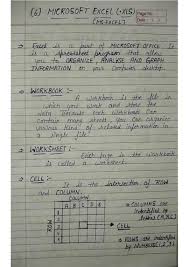 (4) MICROSOFT EXCEL (.XLS)
(MS-EXCEL)
→ Excel is a part of MICROSOFT OFFICE. It
is a spreadsheet program that allow
you to ORGANIZE, ANALYSE AND GRAPH
INFORMATION on your computer
→ WORKBOOK :-
A workbook is the file in
which you work and store the
data. Because each workbook can
contain many sheets you can organize
various kind of related information in
a single file.
→ WORKSHEET :-
Each page in the workbook
is called a worksheet.
→ CELL :-
It is the intersection of ROW
and COLUMN.
COLUMN
A B C D E
ROW
1
2
3
4
5
CELL
→ COLUMNS are
indentified by
→ ROWS are indentified
by NUMBERS